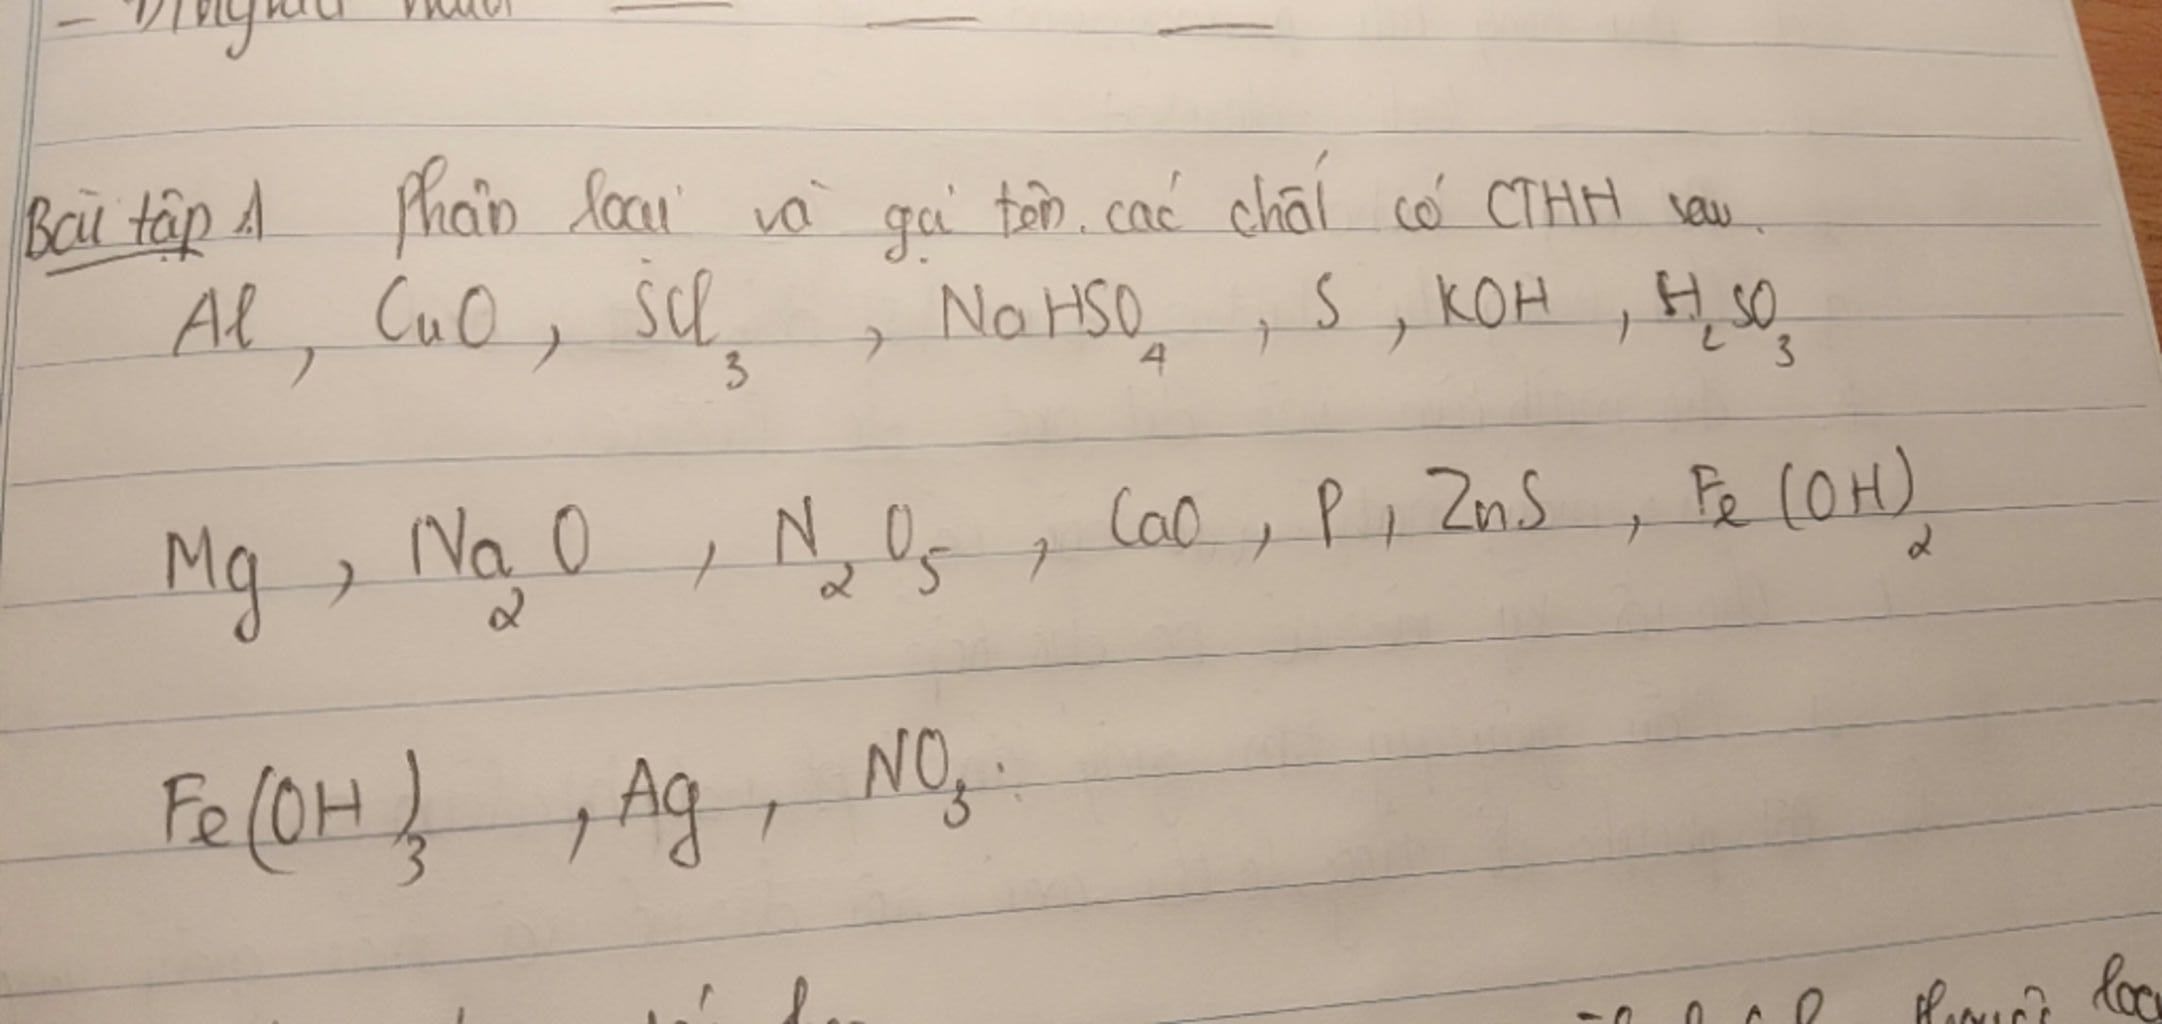 Bài tập 1 Phân loại và gọi tên các chất có CTHH sau.
Al, CuO, SCl3, NaHSO4, S, KOH, H2SO3
Mg, Na2O, N2O5, CaO, P, ZnS, Fe(OH)2
Fe(OH)3, Ag, NO3.